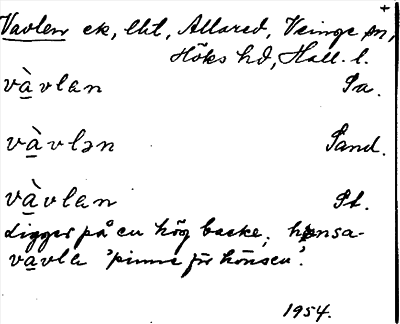 Vavlen ek, lht, Allared, Veinge sn,
Höks hd, Hall. l.
và̱vlan Sa.
và̱vlən Sand.
và̱vlan St.
Ligger på en hög backe; hønsa-
va̱vla 'pinne för hönsen'.
1954.